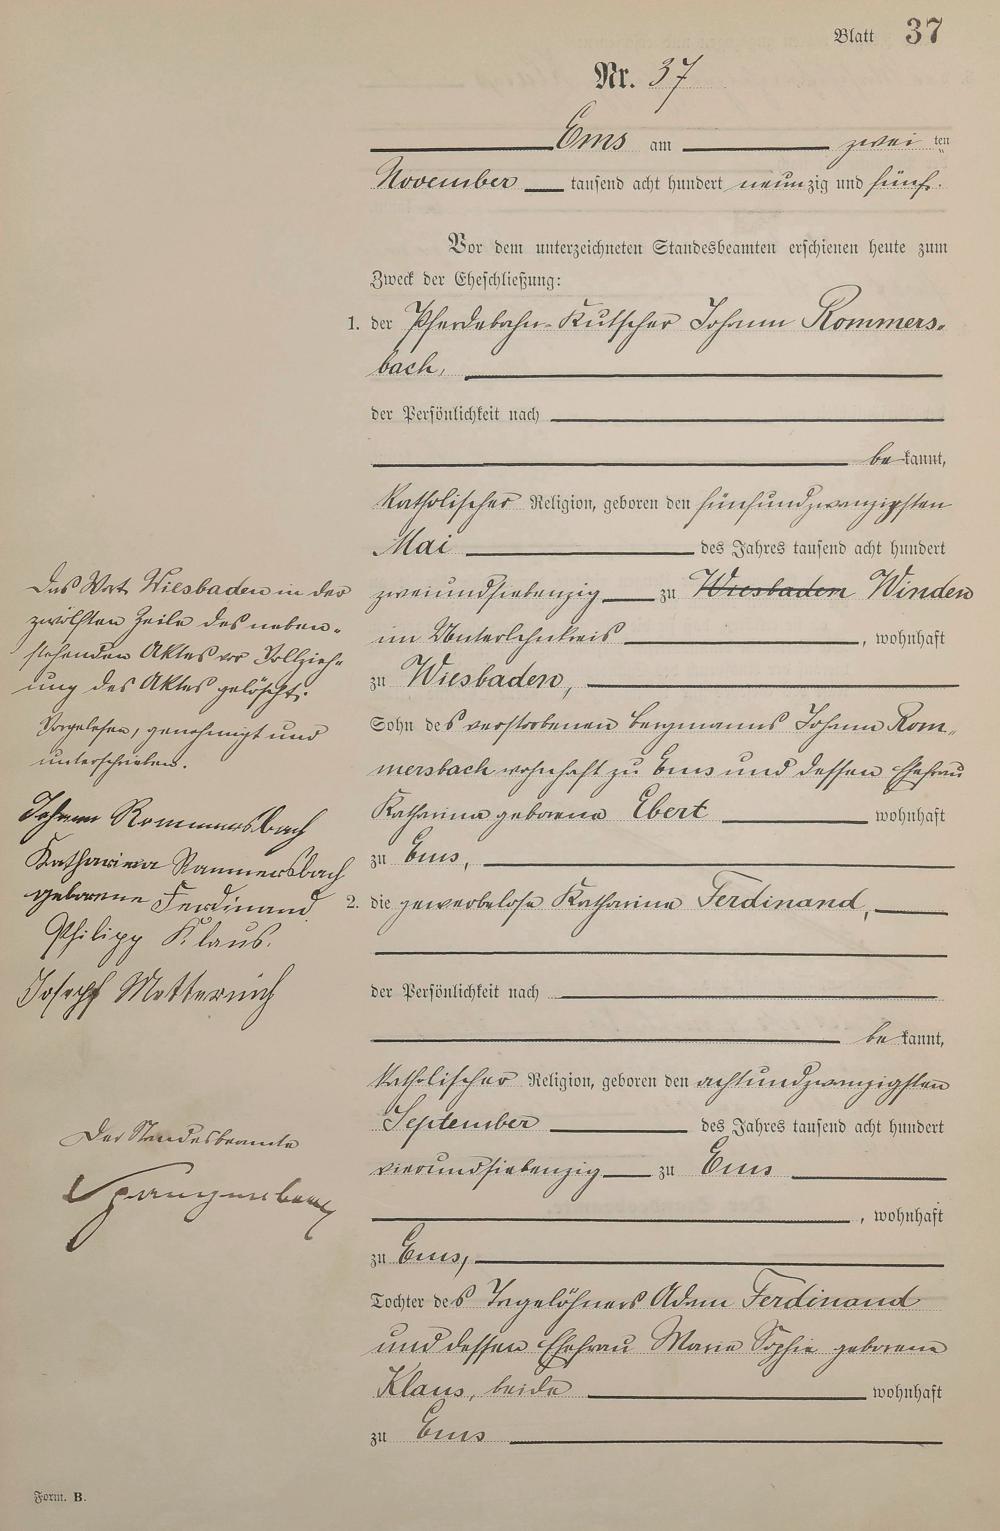 Blatt 37
Nr. 37
Ems am zwei ten
November tausend acht hundert neunzig und fünf.
Vor dem unterzeichneten Standesbeamten erschienen heute zum
Zweck der Eheschließung:
1. der Pferdebahn-Kutscher Johann Rommers-
bach,
der Persönlichkeit nach
be kannt,
katholischer Religion, geboren den fünfundzwanzigsten
Mai des Jahres tausend acht hundert
zweiundsiebenzig zu Wiesbaden Winden
im Unterlahnkreis, wohnhaft
zu Wiesbaden,
Sohn des verstorbenen Bergmanns Johann Rom-
mersbach wohnhaft zu Ems und dessen Ehefrau
Katharina geborene Ebert wohnhaft
zu Ems,
2. die gewerbelose Katharina Ferdinand,
der Persönlichkeit nach
be kannt,
katholischer Religion, geboren den achtundzwanzigsten
September des Jahres tausend acht hundert
vierundsiebenzig zu Ems
, wohnhaft
zu Ems,
Tochter des Tagelöhners Adam Ferdinand
und dessen Ehefrau Maria Sophie geborene
Klaus, beide wohnhaft
zu Ems
Das Wort Wiesbaden in der
zwölften Zeile des neben-
stehenden Aktes vor Vollzieh-
ung des Aktes gelöscht.
Vorgelesen, genehmigt und
unterschrieben.
Johann Rommersbach
Katharina Rommersbach
geborene Ferdinand
Philipp Klaus.
Joseph Metternich
Der Standesbeamte
Spangenberg
Form. B.